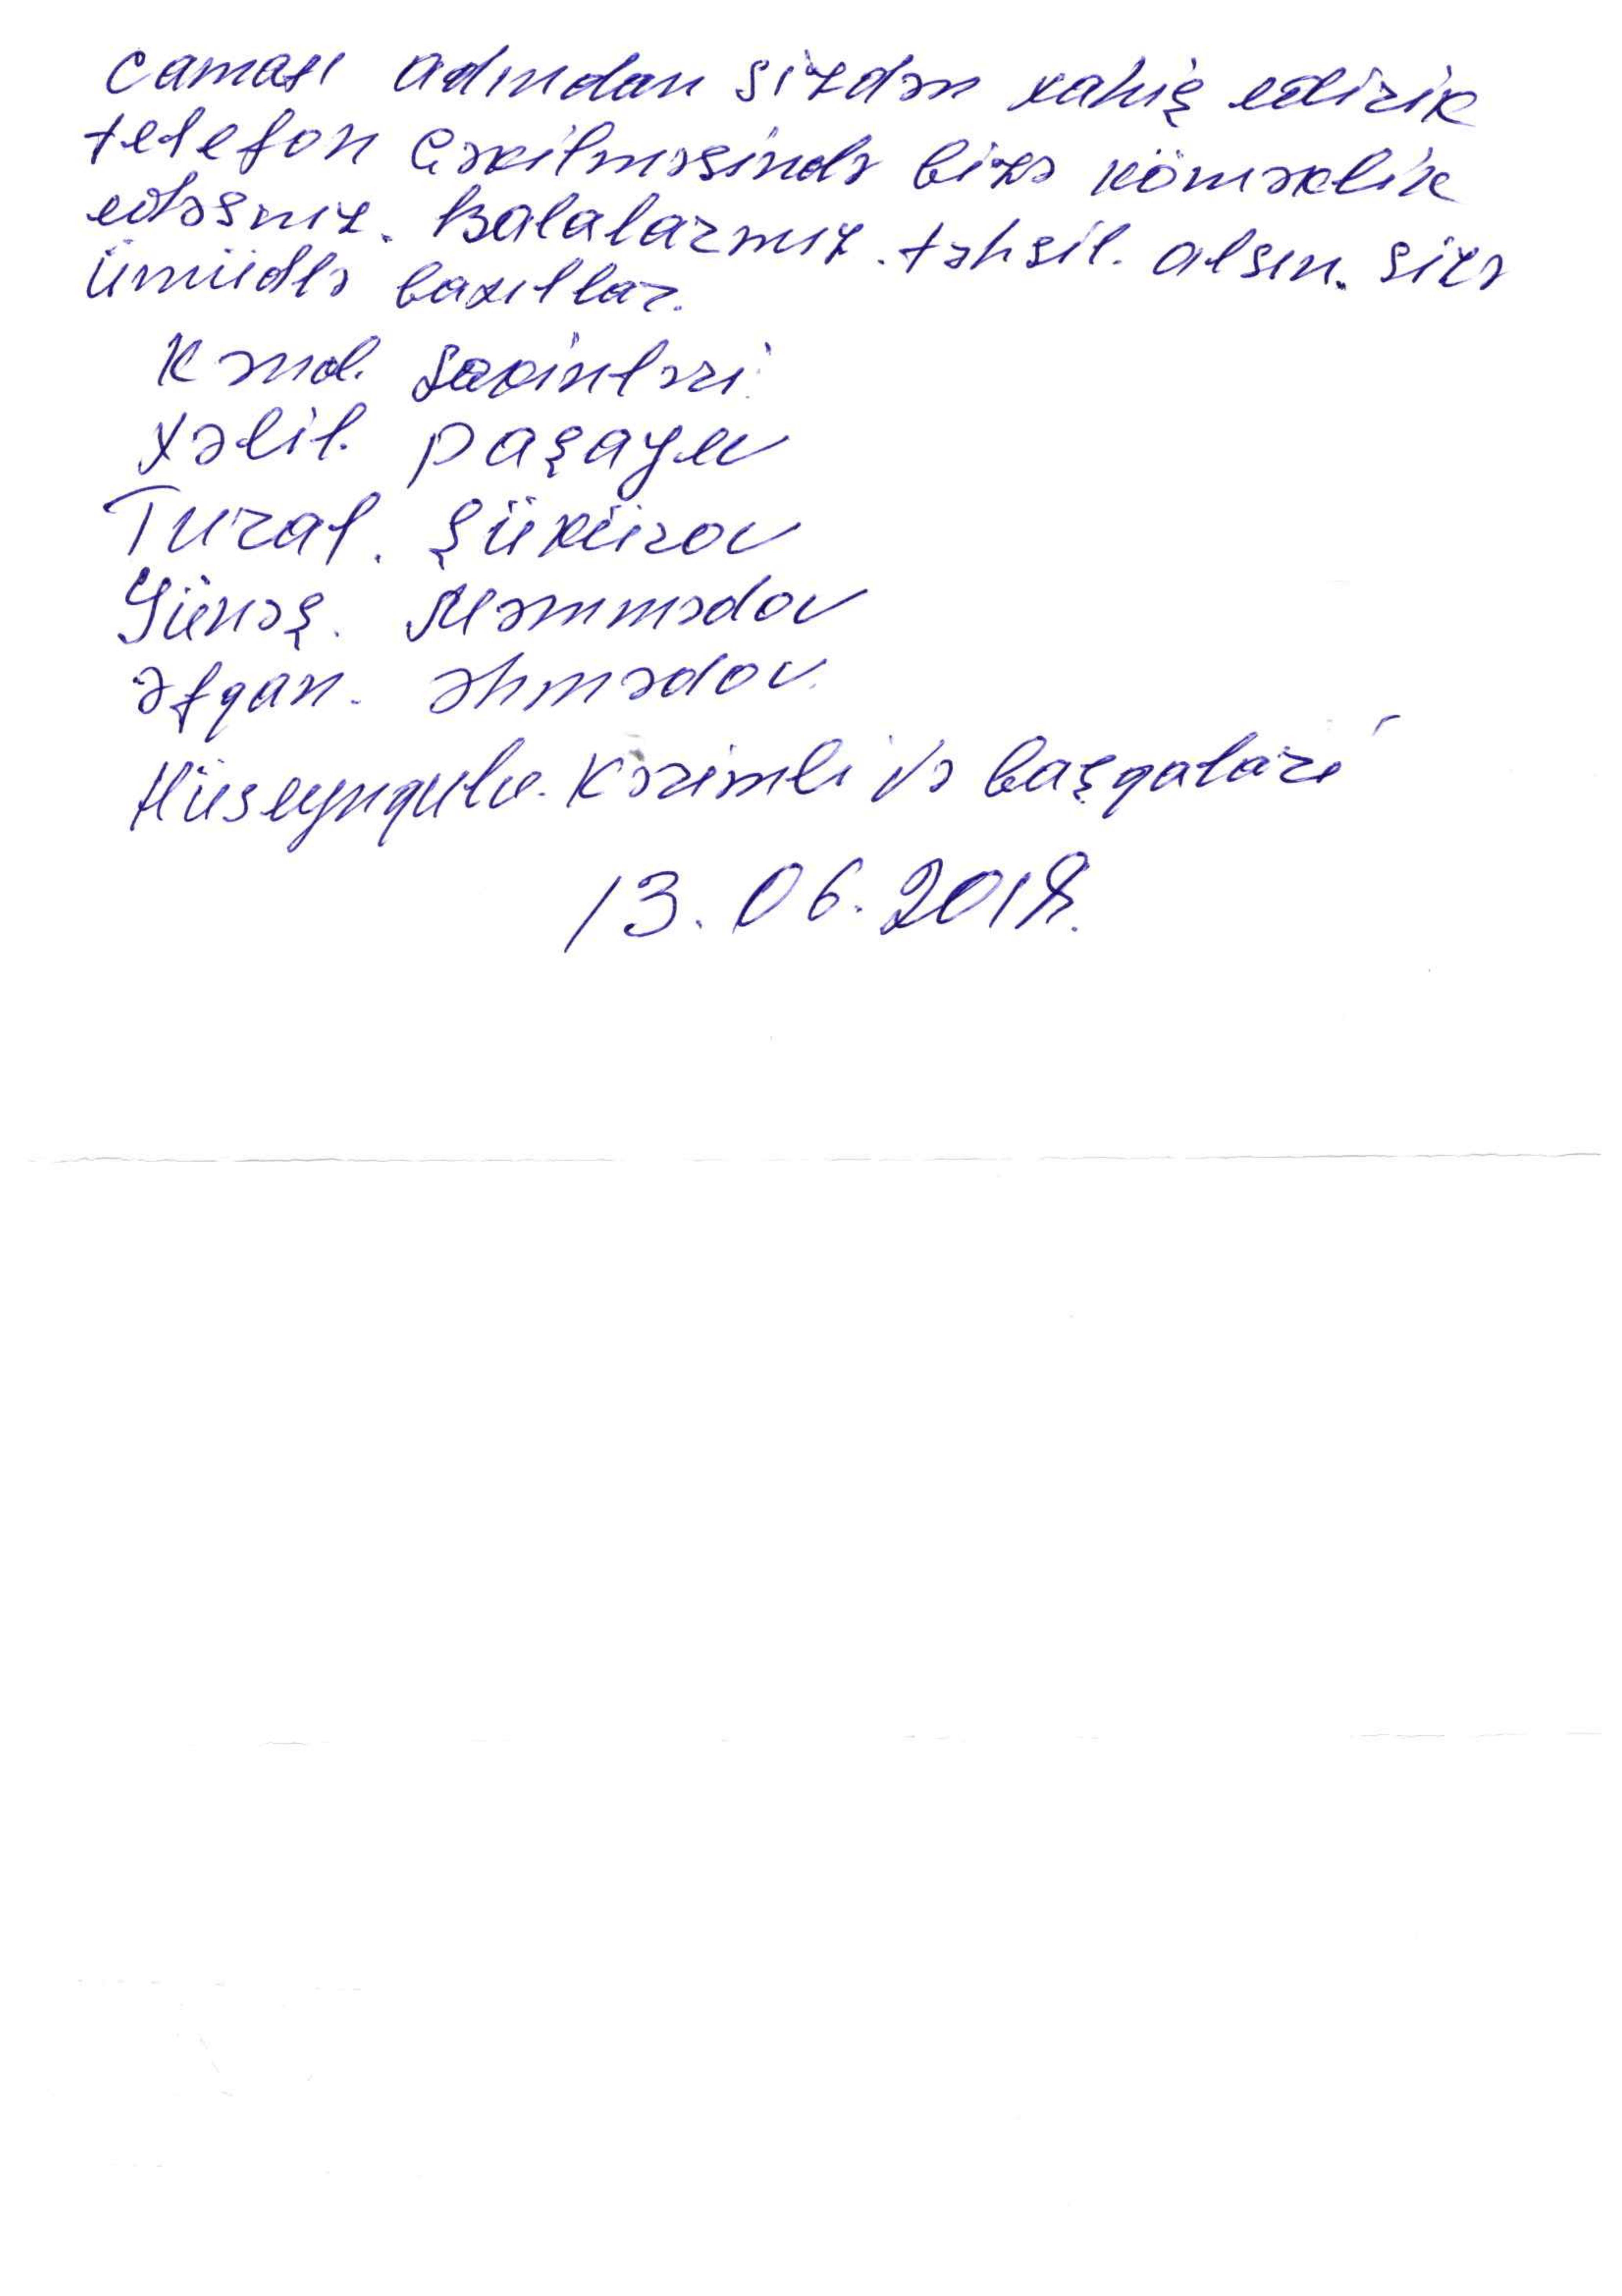 camatı adından sizdən xahiş edirik
telefon çəkilməsində bizə köməklik
edəsniz. Balalarmız. təhsil. alsın. sizə
ümüdlə baxıllar.
Kənd. sakinləri:
Xəlil. Paşayev
Tural. Şükürov
Günəş. Məmmədov
Əfqan. Əhmədov.
Hüseynqulu. Kərimli və başqaları
13.06.2018.